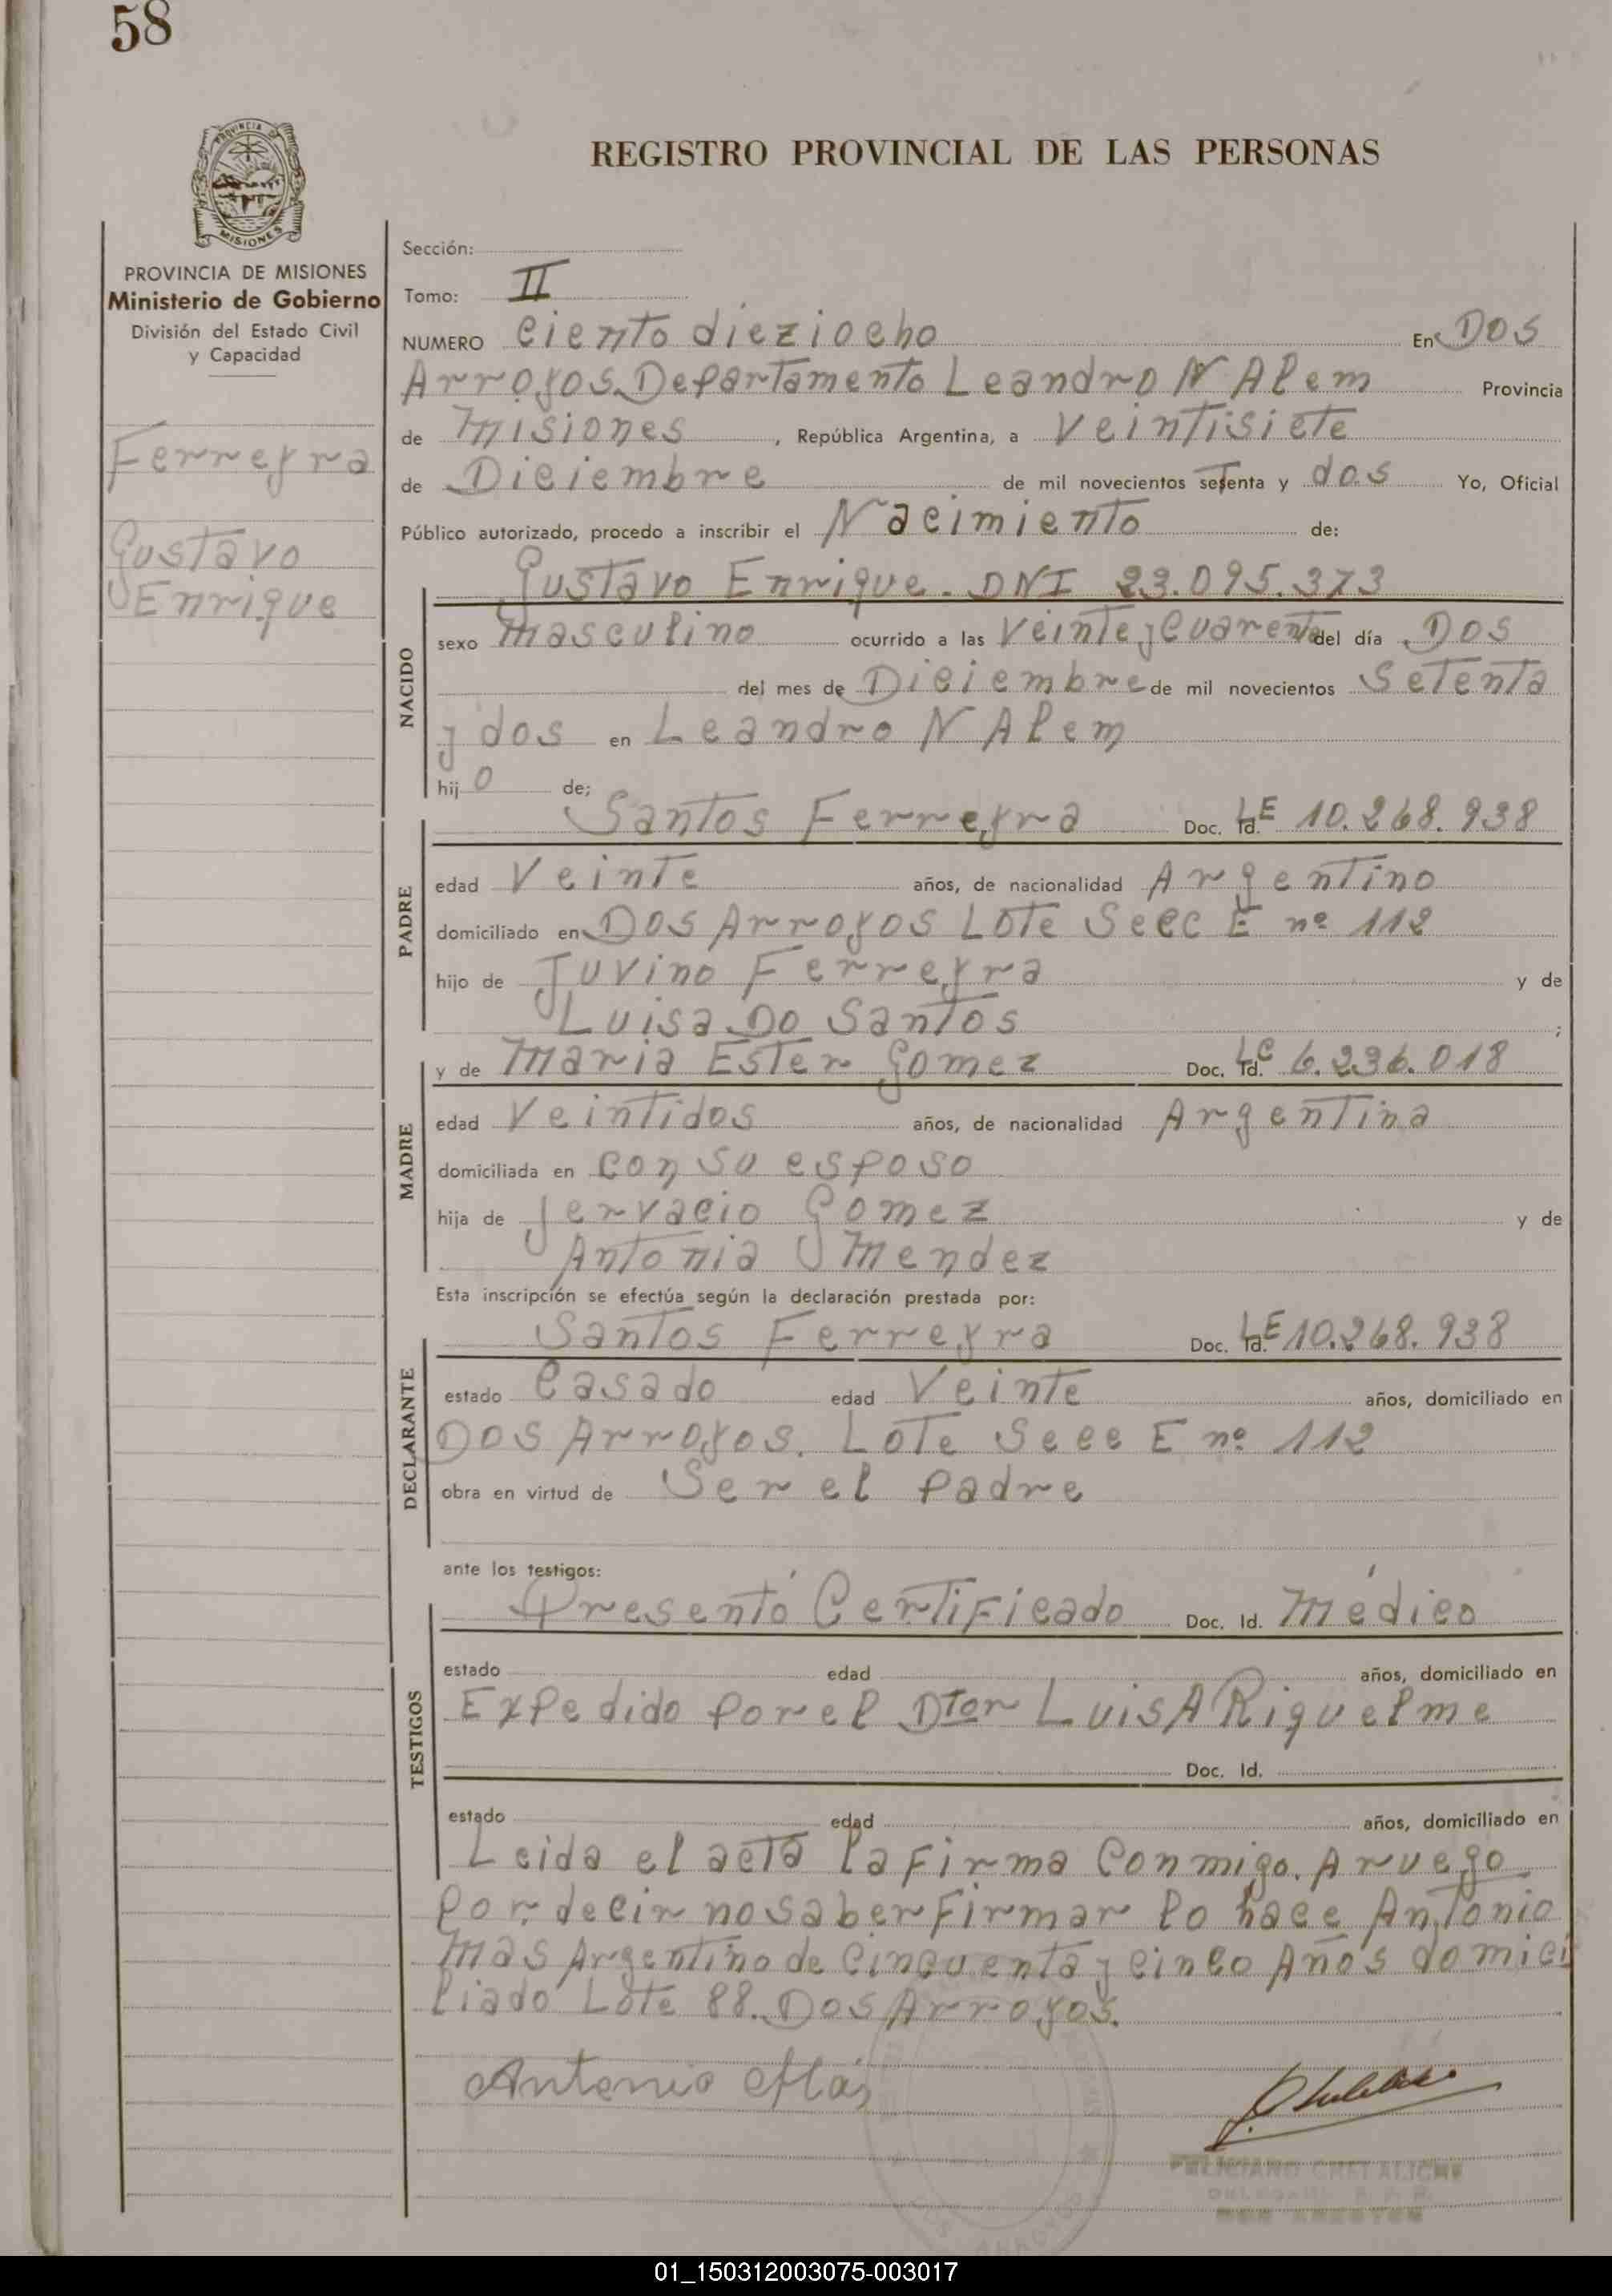 58
PROVINCIA DE MISIONES
REGISTRO PROVINCIAL DE LAS PERSONAS
PROVINCIA DE MISIONES
Ministerio de Gobierno
División del Estado Civil
y Capacidad
Ferreyra
Gustavo
Enrique
Sección:
Tomo: II
NUMERO Ciento dieziocho En Dos
Arroyos Departamento Leandro N Alem Provincia
de Misiones, República Argentina, a Veintisiete
de Diciembre de mil novecientos setenta y dos Yo, Oficial
Público autorizado, procedo a inscribir el Nacimiento de:
Gustavo Enrique. DNI 23.095.373
NACIDO
sexo masculino ocurrido a las Veinte y Cuarenta del día Dos
del mes de Diciembre de mil novecientos Setenta
y dos en Leandro N Alem
hijo de;
PADRE
Santos Ferreyra Doc. Id. LE 10.268.938
edad Veinte años, de nacionalidad Argentino
domiciliado en Dos Arroyos Lote Secc E nº 112
hijo de Juvino Ferreyra y de
Luisa Do Santos ;
MADRE
y de Maria Ester Gomez Doc. Id. LC 6.236.018
edad Veintidos años, de nacionalidad Argentina
domiciliada en con su esposo
hija de Jervacio Gomez y de
Antonia Mendez
Esta inscripción se efectúa según la declaración prestada por:
DECLARANTE
Santos Ferreyra Doc. Id. LE 10.268.938
estado Casado edad Veinte años, domiciliado en
Dos Arroyos. Lote Secc E nº 112
obra en virtud de Ser el padre
ante los testigos:
TESTIGOS
Presentó Certificado Doc. Id. Médico
estado edad años, domiciliado en
Expedido por el Dtor Luis A Riquelme
Doc. Id.
estado edad años, domiciliado en
Leida el acta la firma Conmigo. A ruego
por decir no saber firmar lo hace Antonio
Mas Argentino de Cincuenta y cinco Años domici
liado Lote 88. Dos Arroyos.
Antonio Más
FELICIANO
01_150312003075-003017